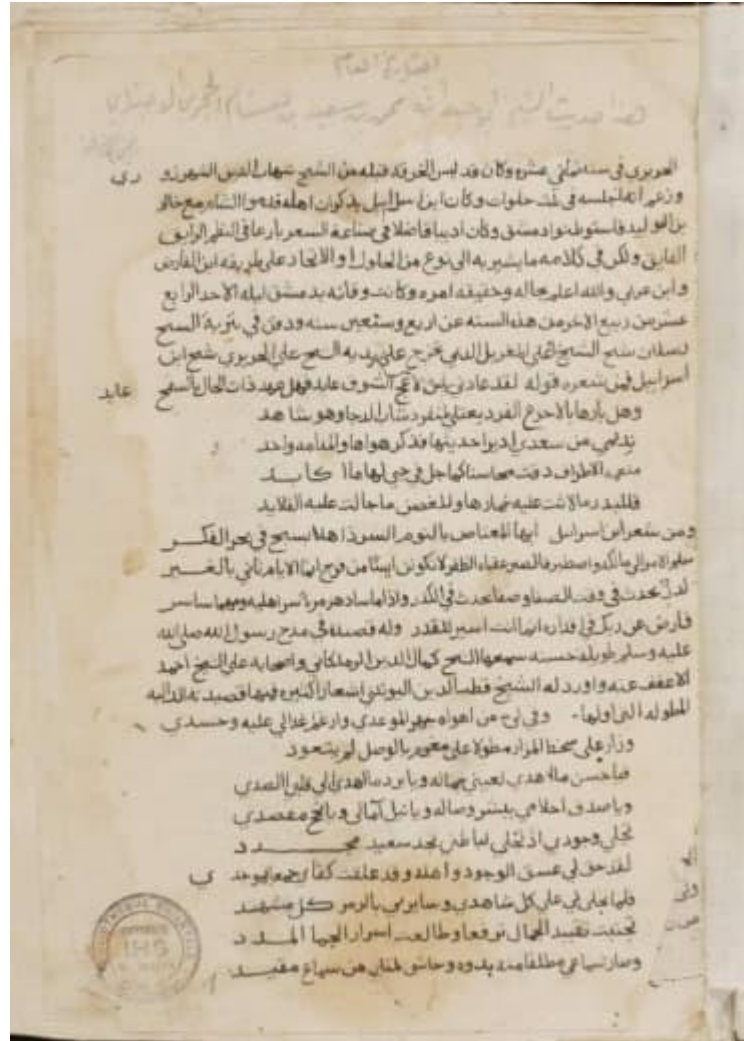 الحريري في سنه ثماني عشره وكان قد لبس الخرقه قبله من الشيخ شهاب الدين السهرورد ري
وزعم انه اجلسه في ثلث خلوات وكان ابن اسرائيل يذكر ان اهله قدموا الشام مع خالد
بن الوليد فاستوطنوا دمشق وكان اديبا فاضلا في صناعة الشعر بارعا في النظم الرايق
الفايق ولكن في كلامه ما يشير به الى نوع من الحلول او الاتحاد على طريقه ابن الفارض
وابن عربي والله اعلم بحاله وحقيقه امره وكانت وفاته بدمشق ليله الاحد الرابع
عشر من ربيع الاخر من هذه السنه عن اربع وسبعين سنه ودفن في تربة الشيخ
رسلان شيخ الشيخ علي المغربل الذي تخرج على يديه الشيخ علي الحريري شيخ ابن
اسرائيل فمن شعره قوله لقد عادني من لاعج الشوق عايد فهل عهد ذات الخال بالسفح عايد
وهل نارها بالاجرع الفرد يعتلي لمنفرد شاب الدجا وهو شاهد
نديمي من سعدي اديرا حديثها فذكر هواها والمدامه واحد
منعمه الاطراف رقت محاسنا كما جل في حبي لها ما اكابد
فللبدر ما لاثت عليه خمارها وللغصن ما جالت عليه القلايد
ومن شعر ابن اسرائيل ايها المعتاض بالنوم السهر ذاهلا يسبح في بحر الفكر
سلم الامر الى مالكه واصطبر فالصبر عقباه الظفر لا تكونن ايسا من فرج انما الايام تاتي بالغير
كدر يحدث في وقت الصفا وصفا يحدث في الكدر واذا ما ساء دهر مره سر اهليه ومهما ساسر
فارض عن ربك في اقداره انما انت اسير للقدر وله قصيده في مدح رسول الله صلى الله
عليه وسلم طويله حسنه سمعها الشيخ كمال الدين الزملكاني واصحابه على الشيخ احمد
الاعفف عنه واورد له الشيخ قطب الدين اليونيني اشعارا كثيره فمنها قصيدته الداليه
المطوله التي اولها وفى لي من اهواه جهرا لموعدي وارغم عذالي عليه وحسدي
وزار على شحط المزار مطولا على مغرم بالوصل لم يتعود
فيا حسن ما اهدى لعيني جماله ويا برد ما اهدى الى قلبي الصدي
ويا صدق احلامي ببشرى وصاله ويا نيل آمالي ويا نجح مقصدي
تجلى وجودي اذ تجلى لباطني بجد سعيد مجدد
لقد حق لي عشق الوجود واهله وقد علقت كفاي جمعا بموجدي
فلما تجلى لي على كل شاهد وسامرني بالرمز كل مشهد
تجنبت تقييد الجمال ترفعا وطالعت اسرار الجمال المبدد
وصار سماعي مطلقا منه بدوه وحاشى لمثلي من سماع مقيد